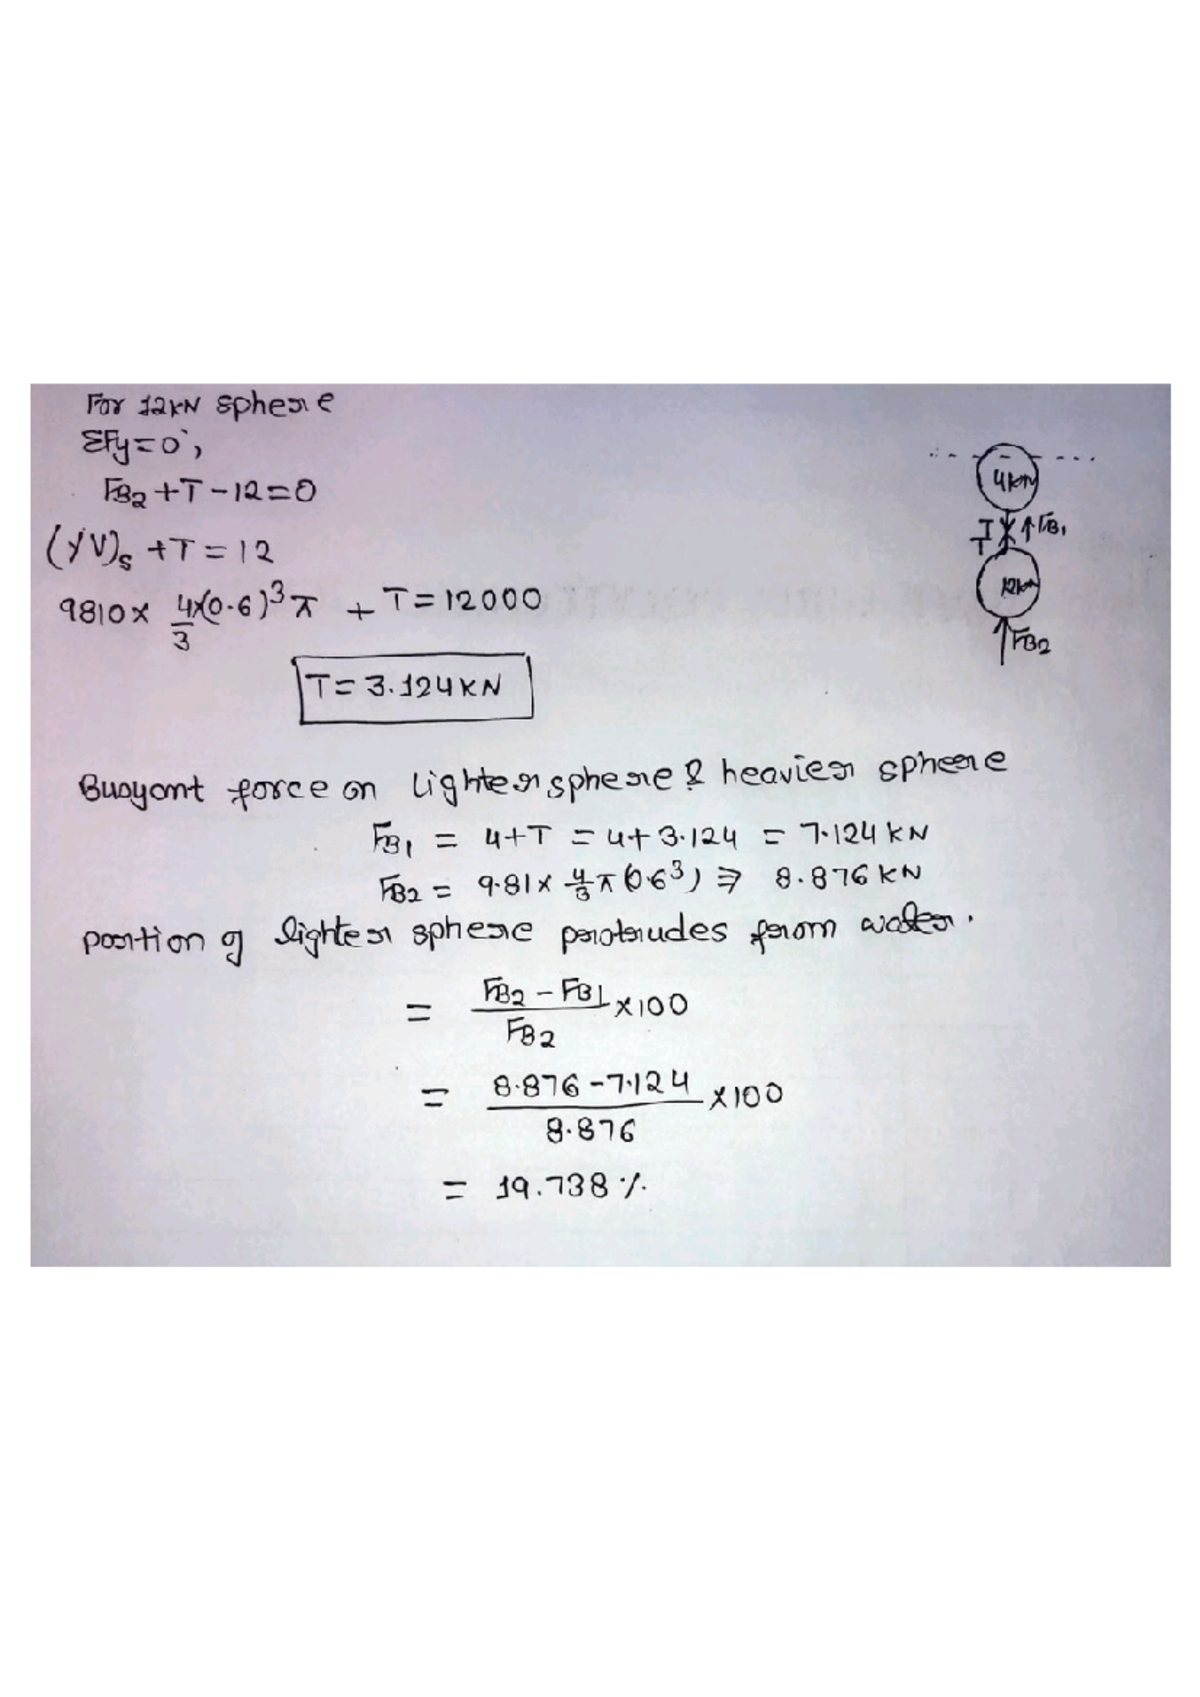 For 12kN sphere
ΣFy=0,
FB2+T-12=0
(γV)s +T=12
9810× 4/3×(0.6)³π + T=12000
T=3.124KN
4kN
T FB1
T
12kN
FB2
Buoyant force on lighter sphere & heavier spheere
FB1 = 4+T = 4+3.124 = 7.124KN
FB2 = 9.81× 4/3 π(0.6³) ⇒ 8.876KN
portion of lighter sphere protrudes from water.
= FB2-FB1/FB2 ×100
= 8.876-7.124/8.876 ×100
= 19.738%